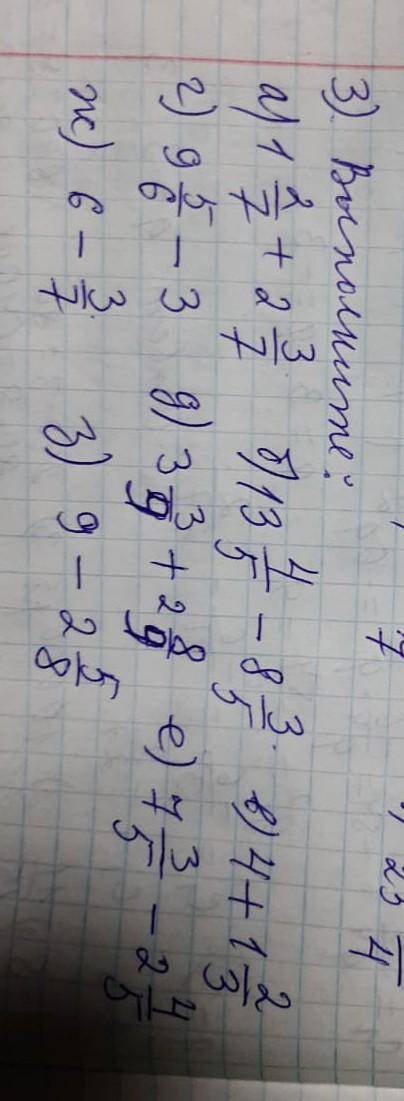 7
23 —/4
3) Выполните:
а) 1 2/7 + 2 3/7 б) 13 4/5 - 8 3/5 в) 4 + 1 2/3
г) 9 5/6 - 3 д) 3 3/9 + 2 8/9 е) 7 3/5 - 2 4/5
ж) 6 - 3/7 з) 9 - 2 5/8